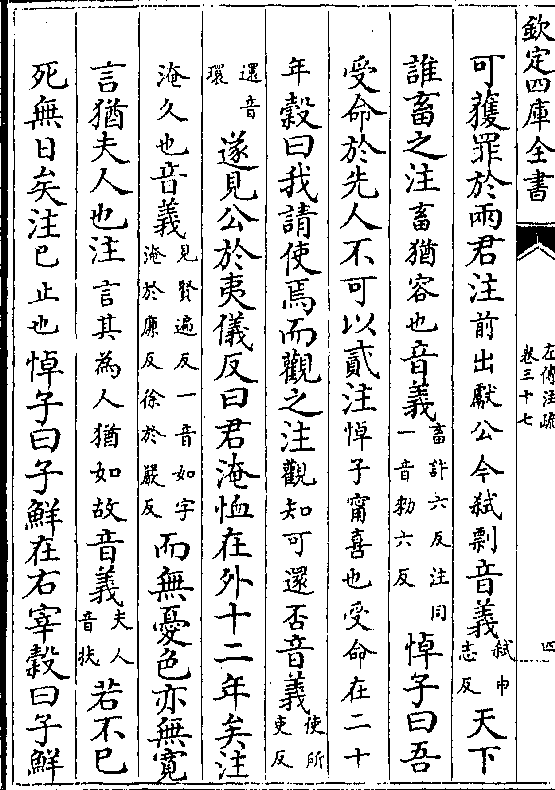 欽定四庫全書
左傳注疏
卷三十七
四
可獲罪於兩君注前出獻公今弑剽音義弑申志反天下
誰畜之注畜猶容也音義畜許六反注同一音勑六反悼子曰吾
受命於先人不可以貳注悼子甯喜也受命在二十
年穀曰我請使焉而觀之注觀知可還否音義使所吏反
還音環遂見公於夷儀反曰君淹恤在外十二年矣注
淹久也音義見賢遍反一音如字淹於廉反徐於嚴反而無憂色亦無寛
言猶夫人也注言其為人猶如故音義夫人音扶若不已
死無日矣注已止也悼子曰子鮮在右宰穀曰子鮮